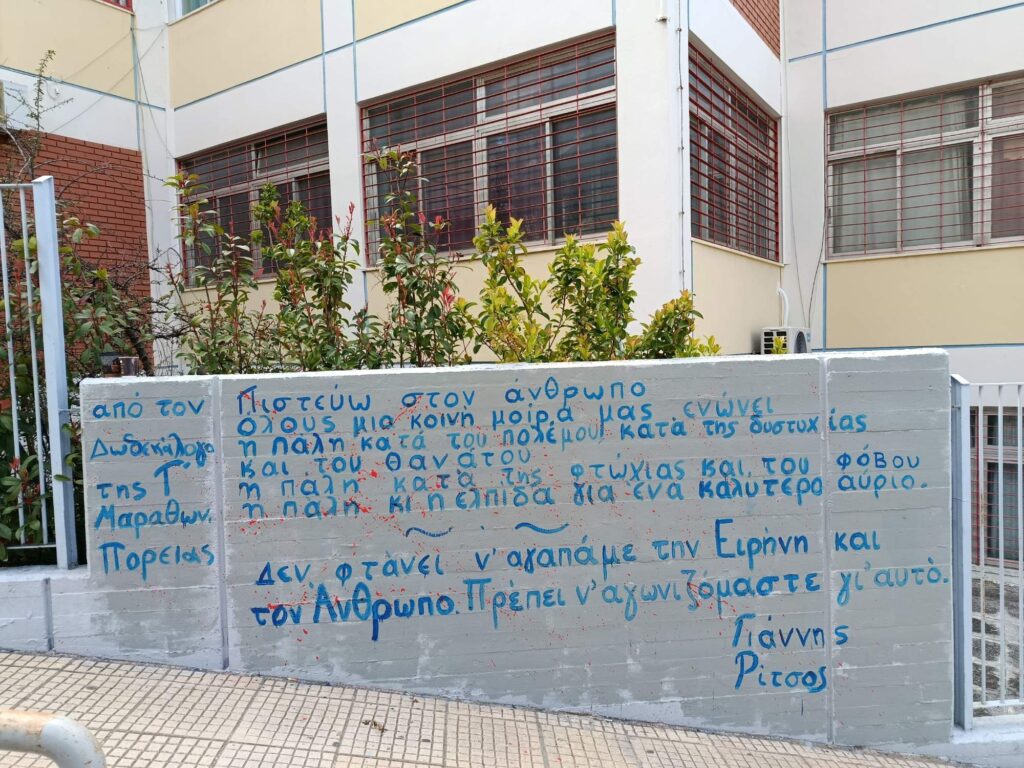 από τον
Δωδεκάλογο
της Γ΄
Μαραθων.
Πορείας
Πιστεύω στον άνθρωπο
Όλους μια κοινή μοίρα μας ενώνει
η πάλη κατά του πολέμου, κατά της δυστυχίας
και του θανάτου
η πάλη κατά της φτώχιας και του φόβου
η πάλη κι η ελπίδα για ένα καλύτερο αύριο.
Δεν φτάνει ν' αγαπάμε την Ειρήνη και
τον Άνθρωπο. Πρέπει ν' αγωνιζόμαστε γι' αυτό.
Γιάννης
Ρίτσος